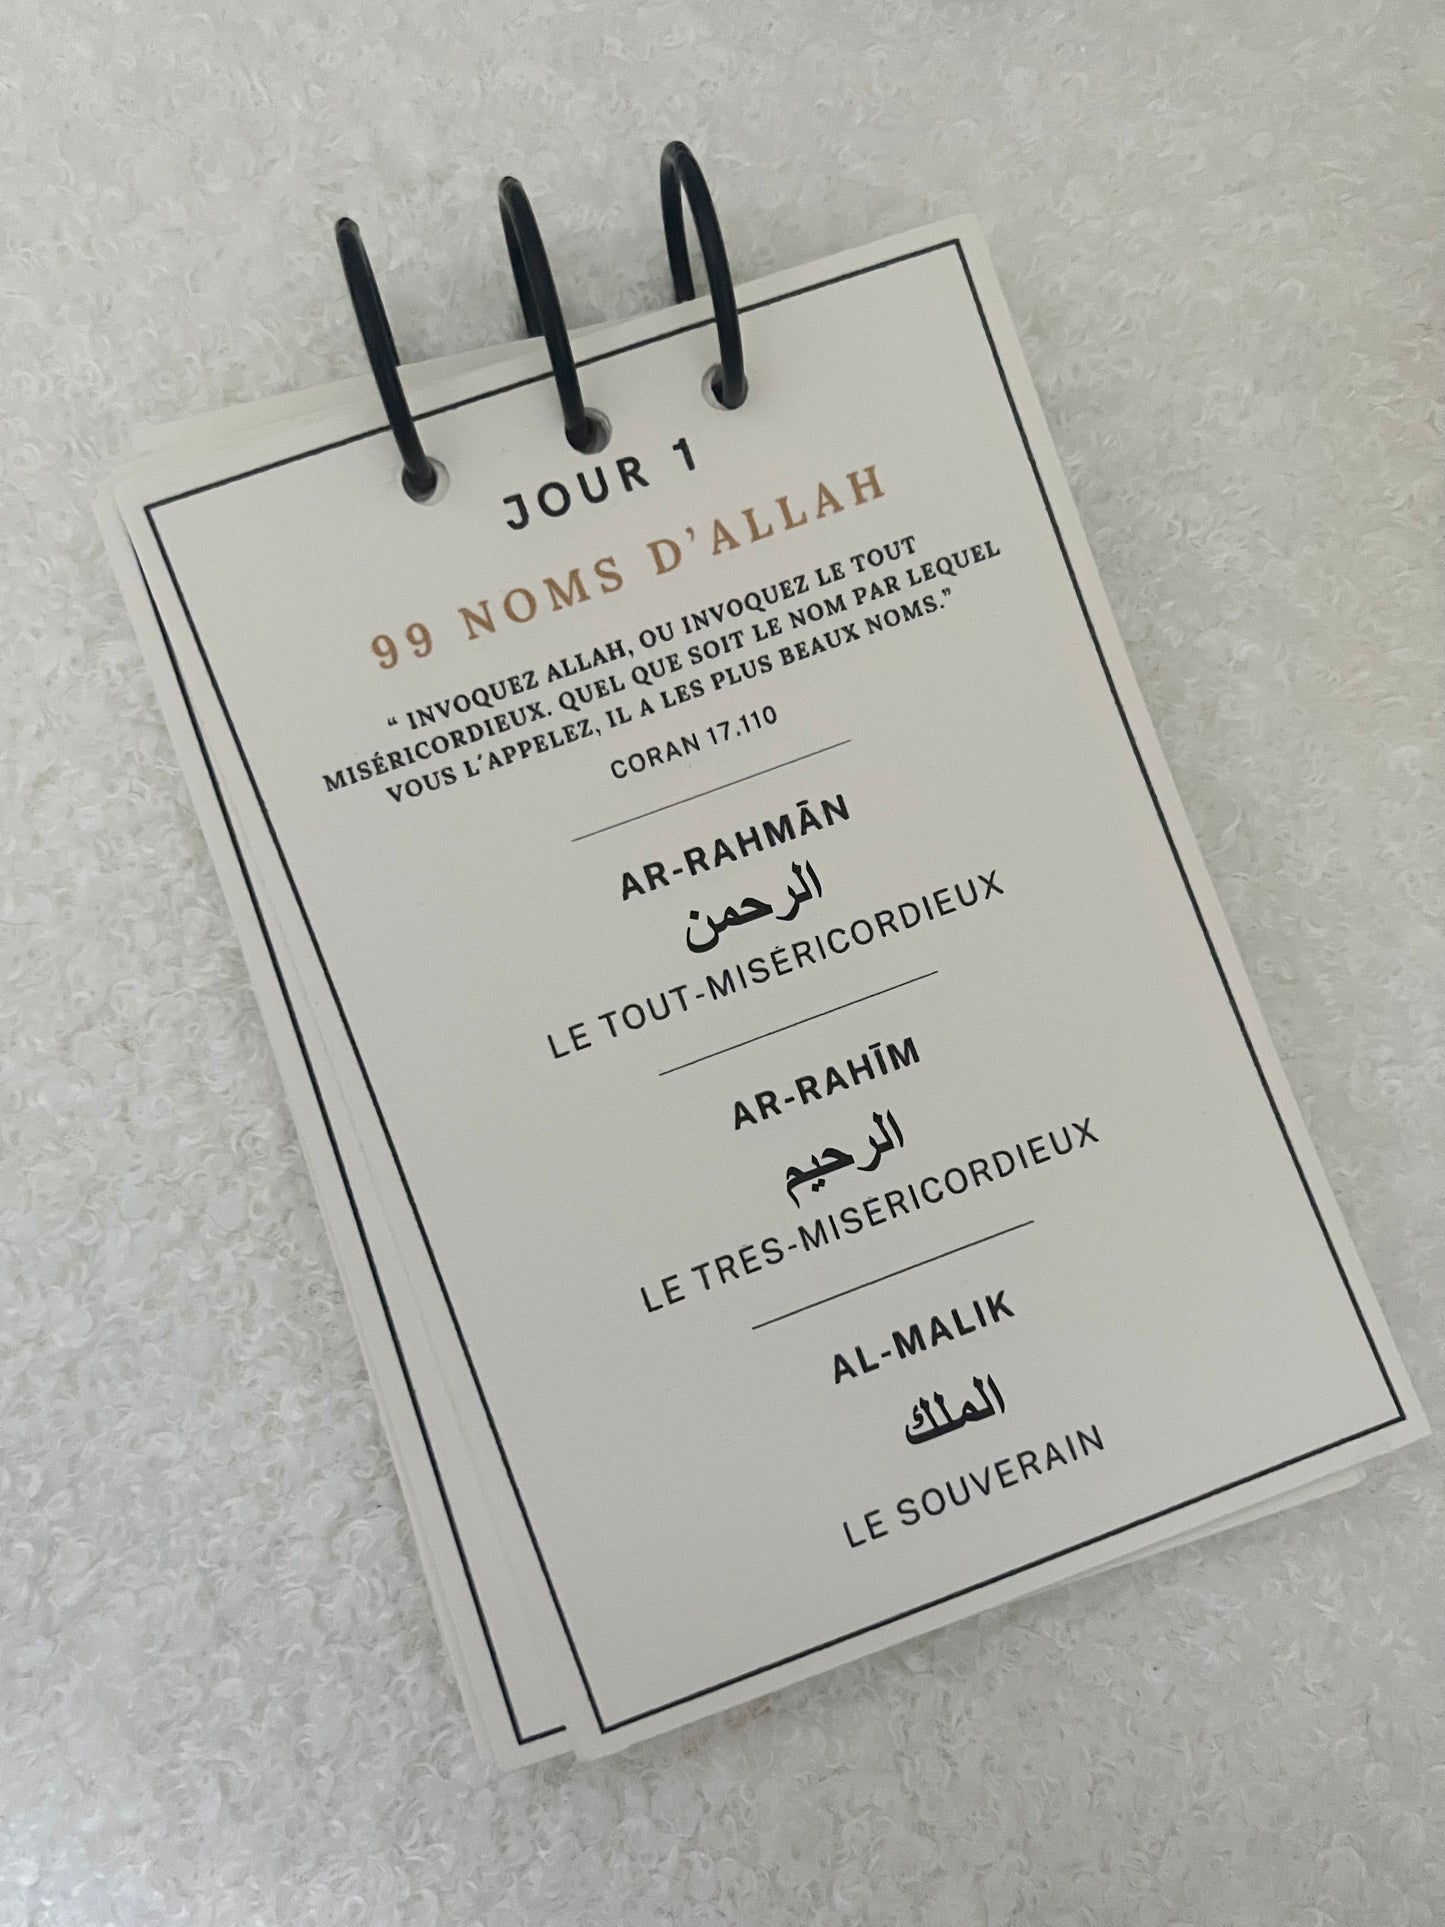 JOUR 1
99 NOMS D'ALLAH
“ INVOQUEZ ALLAH, OU INVOQUEZ LE TOUT
MISÉRICORDIEUX. QUEL QUE SOIT LE NOM PAR LEQUEL
VOUS L'APPELEZ, IL A LES PLUS BEAUX NOMS.”
CORAN 17.110
AR-RAHMĀN
الرحمن
LE TOUT-MISÉRICORDIEUX
AR-RAHĪM
الرحيم
LE TRÈS-MISÉRICORDIEUX
AL-MALIK
الملك
LE SOUVERAIN